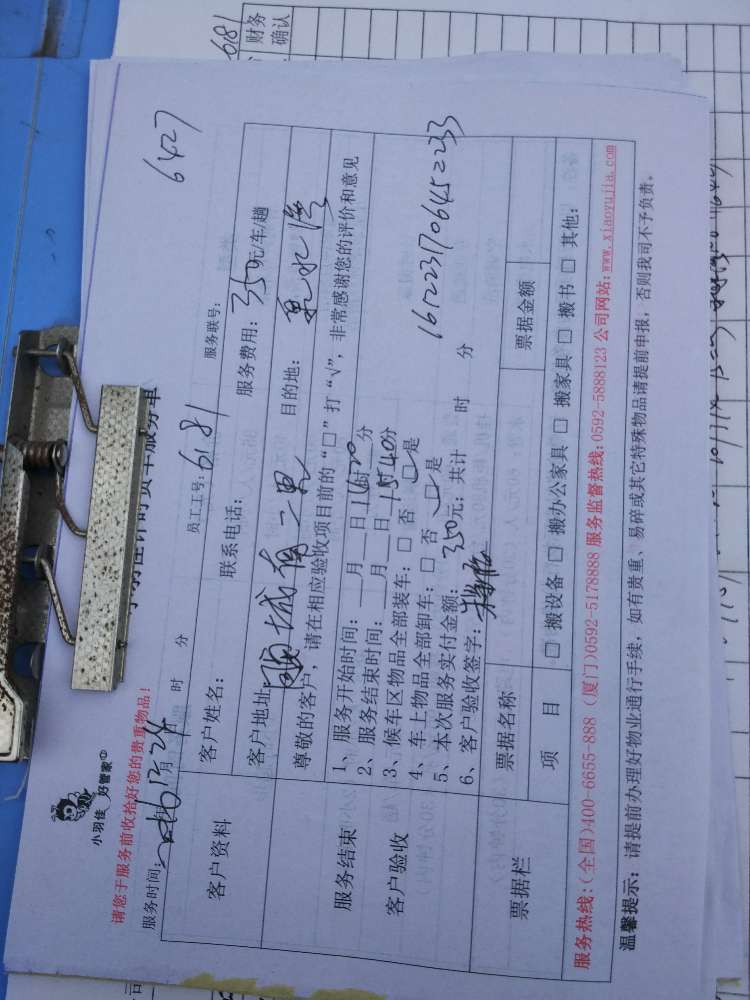 小羽佳 好管家
请您于服务前收拾好您的贵重物品！
服务时间： 月 24 时 分 员工工号：6181 服务联号： 6427
客户资料
客户姓名： 联系电话： 服务费用：350元/车/趟
客户地址： 城 二里 目的地：
尊敬的客户，请在相应验收项目前的“□”打“√”，非常感谢您的评价和意见
服务结束
客户验收
1、服务开始时间：__月__日 分
2、服务结束时间：__月__日1540分
3、候车区物品全部装车：□ 否 □ 是
4、车上物品全部卸车：□ 否 □ 是
5、本次服务实付金额：350元；共计 时 分
6、客户验收签字：
1612231706452233
票据栏
票据名称 票据金额
项 目 □ 搬设备 □ 搬办公家具 □ 搬家具 □ 搬书 □ 其他：
服务热线：(全国)400-6655-888 (厦门)0592-5178888 服务监督热线：0592-5888123 公司网站：www.xiaoyujia.com
温馨提示：请提前办理好物业通行手续，如有贵重、易碎或其它特殊物品请提前申报，否则我司不予负责。
6181
财务
确认